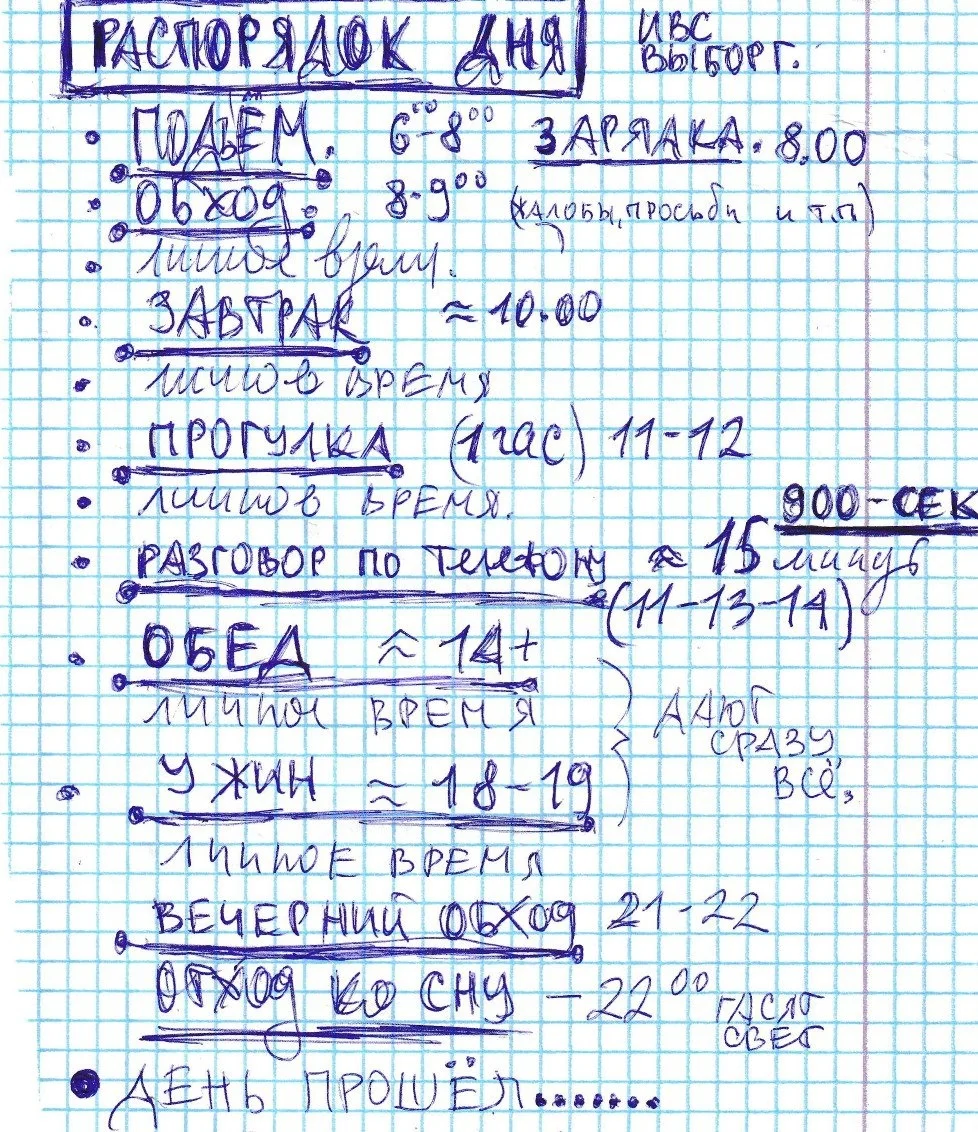 РАСПОРЯДОК ДНЯ ИВС
ВЫБОРГ.
• ПОДЪЁМ. 6⁰⁰-8⁰⁰ ЗАРЯДКА. 8.00
• ОБХОД. 8-9⁰⁰ (ЖАЛОБЫ, ПРОСЬБЫ и т.п)
• личное время.
• ЗАВТРАК ≈ 10.00
• личное ВРЕМЯ
• ПРОГУЛКА (1 час) 11-12
• личное ВРЕМЯ.
900-СЕК
• РАЗГОВОР ПО ТЕЛЕФОНУ ≈ 15 минут
(11-13-14)
• ОБЕД ≈ 14+
личное ВРЕМЯ } ДАЮТ
СРАЗУ
ВСЁ,
• УЖИН ≈ 18-19
ЛИЧНОЕ ВРЕМЯ
ВЕЧЕРНИЙ ОБХОД 21-22
ОТХОД КО СНУ - 22⁰⁰ ГАСЯТ
СВЕТ
• ДЕНЬ ПРОШЁЛ........